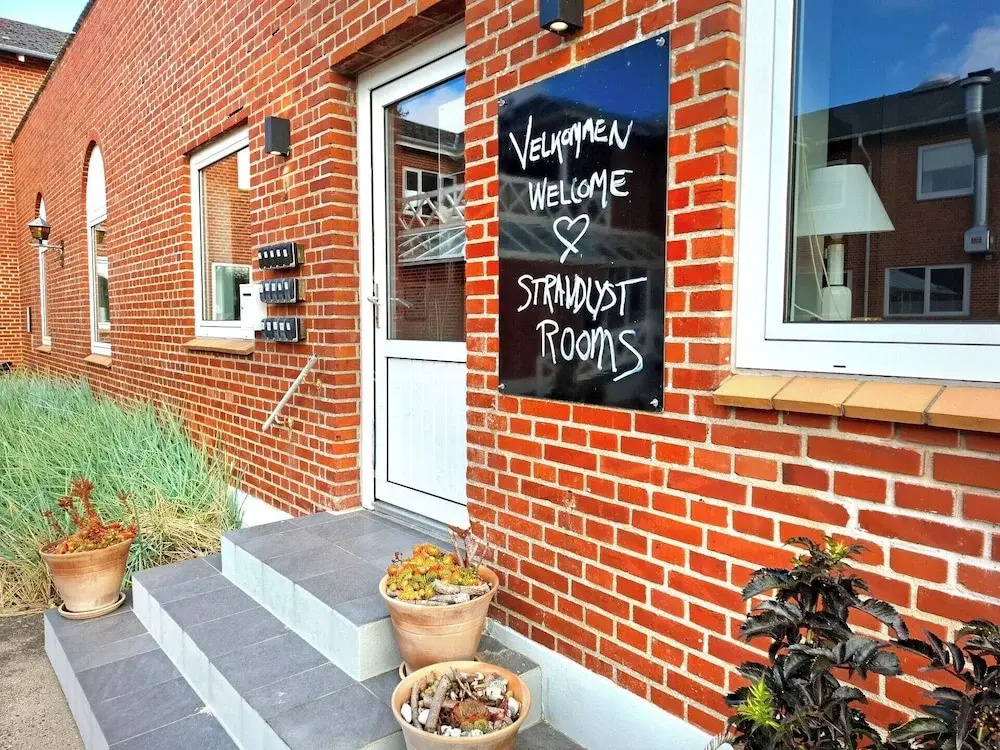 Velkommen
Welcome
Strandlyst
Rooms